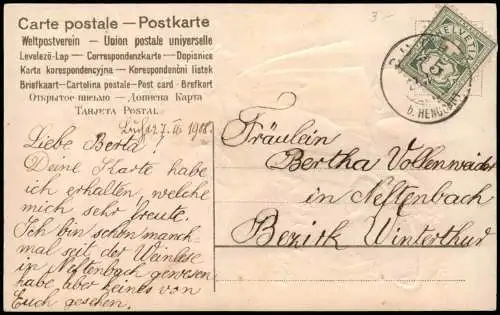 Carte postale — Postkarte
Weltpostverein — Union postale universelle
Levelező-Lap — Correspondenzkarte — Dopisnice
Karta korespondencyjna — Korespondenční listek
Briefkaart — Cartolina postale — Post card — Brefkort
Открытое письмо — Дописна Карта
Tarjeta Postal
7. III 1908.
Liebe Berta!
Deine Karte habe
ich erhalten, welche
mich sehr freute.
Ich bin schon manch-
mal seit der Weinlese
in Neftenbach gewesen
habe aber keines von
Euch gesehen.
3-
HELVETIA
5
b. HENGG
Fräulein
Bertha Vollenweider
in Neftenbach
Bezirk Winterthur